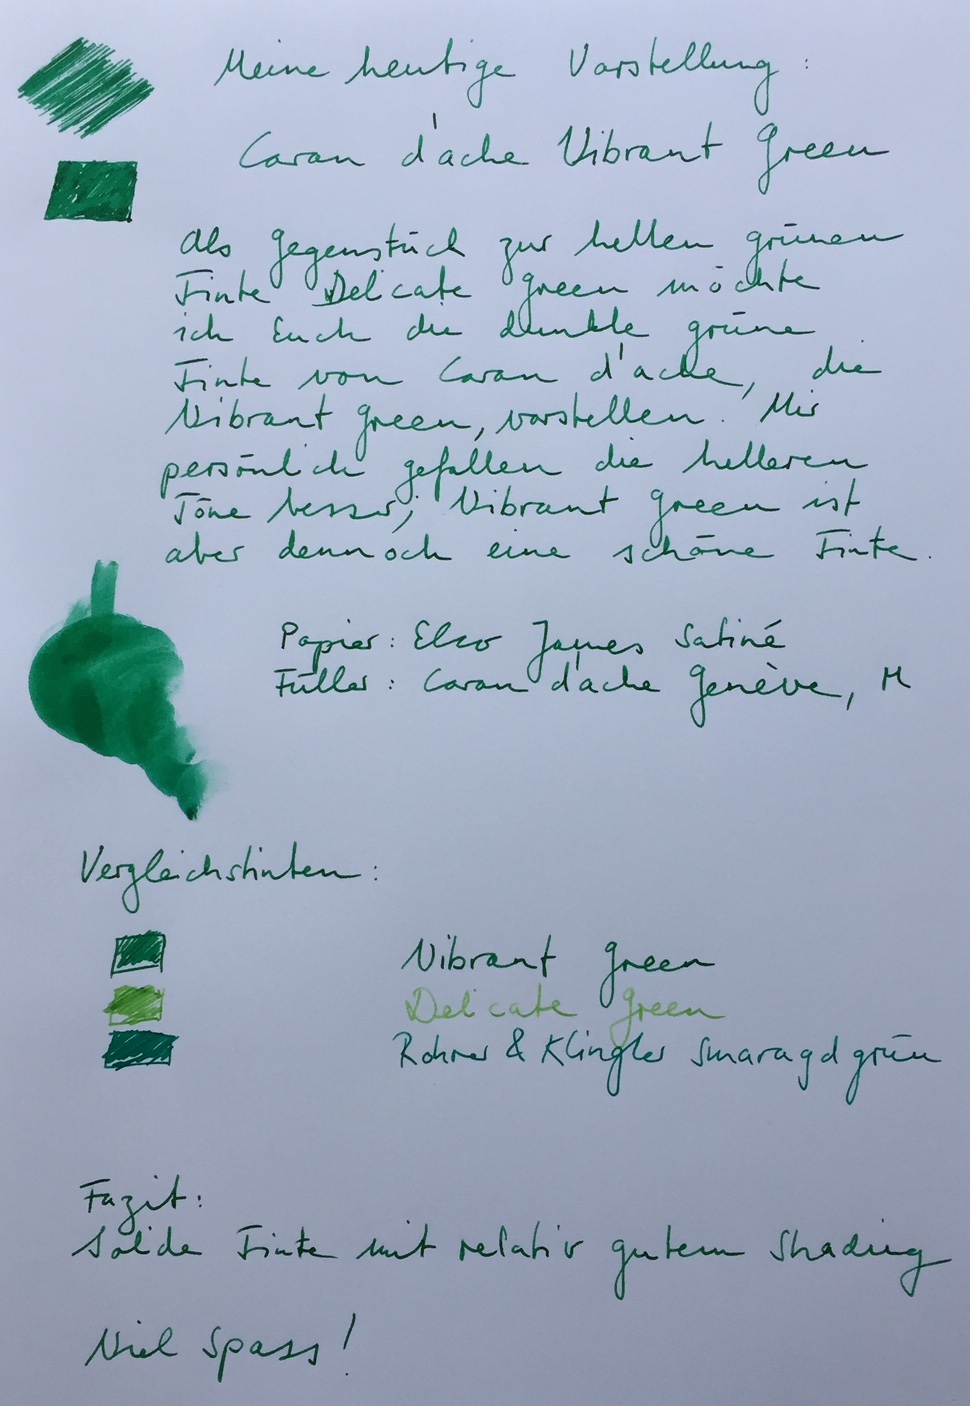 Meine heutige Vorstellung:
Caran d'ache Vibrant Green
Als Gegenstück zur hellen grünen
Tinte Delicate Green möchte
ich Euch die dunkle grüne
Tinte von Caran d'ache, die
Vibrant Green, vorstellen. Mir
persönlich gefallen die helleren
Töne besser; Vibrant Green ist
aber dennoch eine schöne Tinte.
Papier: Elco James Satiné
Füller: Caran d'ache Genève, M
Vergleichstinten:
Vibrant Green
Delicate Green
Rohrer & Klingler Smaragdgrün
Fazit:
Solide Tinte mit relativ gutem Shading
Viel Spass!